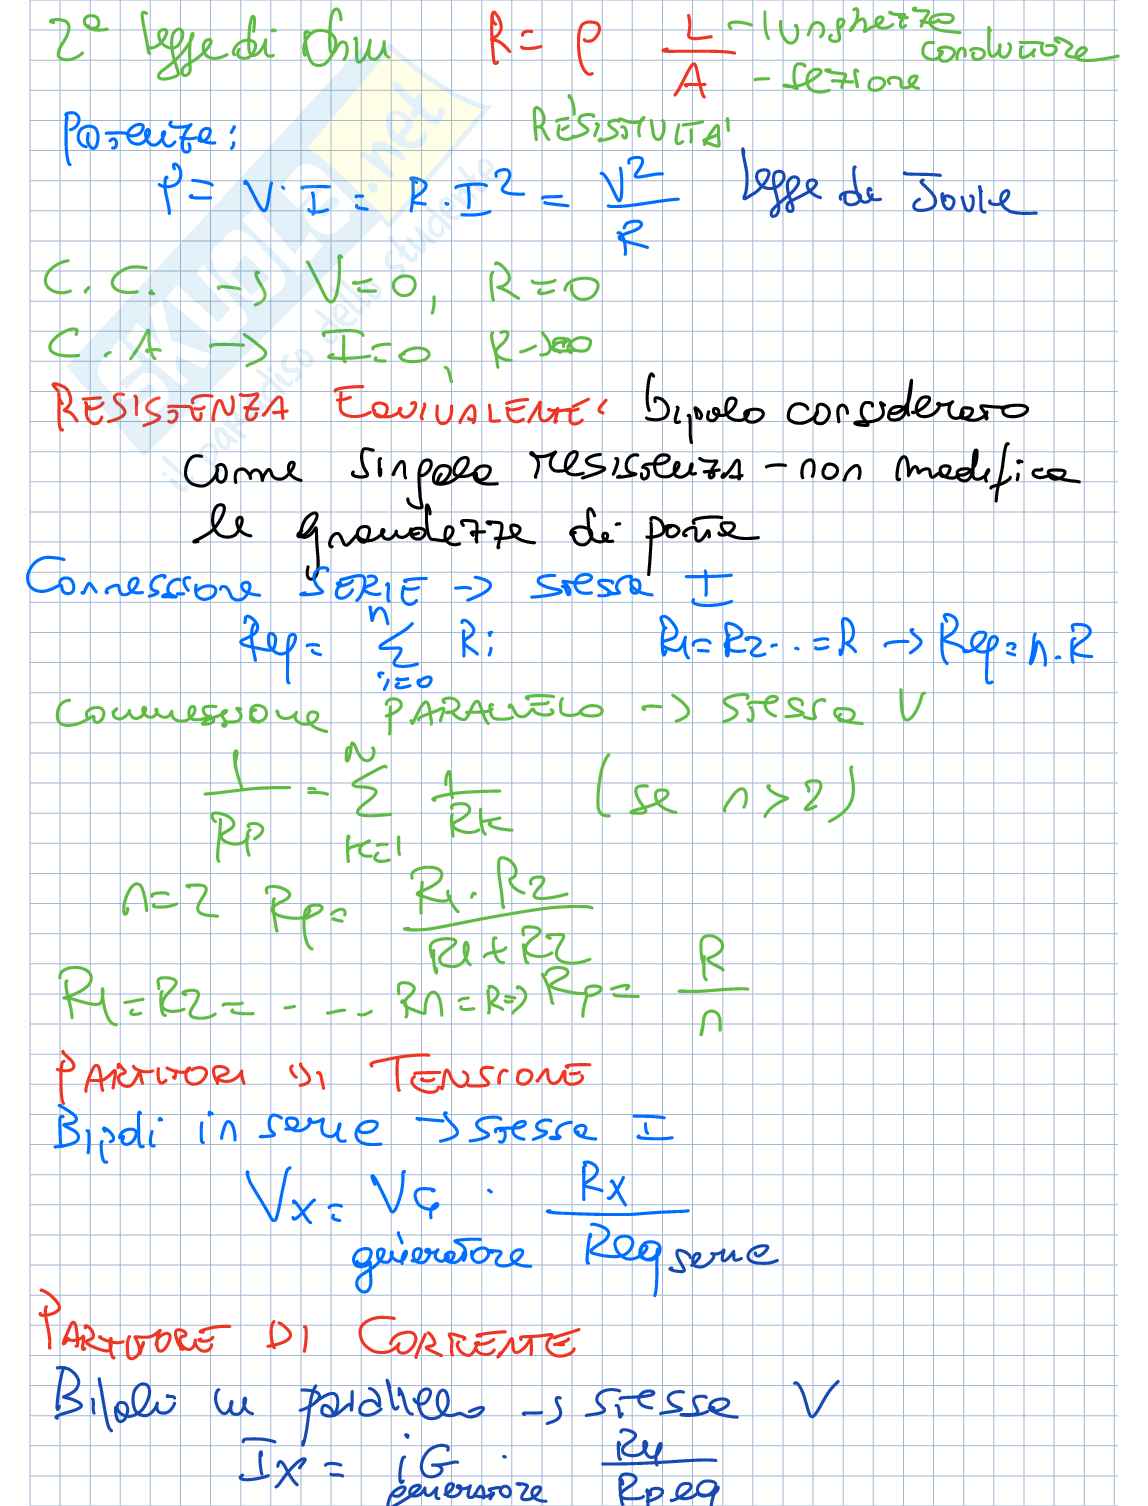 2ª legge di Ohm R = ρ L/A - lunghezza conduttore
- sezione
RESISTIVITA'
Potenza:
P = V · I = R · I² = V²/R legge di Joule
C.C. → V = 0, R = 0
C.A → I = 0, R → ∞
RESISTENZA EQUIVALENTE: bipolo considerato
come singola resistenza - non modifica
le grandezze di porta
Connessione SERIE → stessa I
Req = ∑ i=0 n Ri R1 = R2 ... = R → Req = n · R
Connessione PARALLELO → stessa V
1/Rp = ∑ k=1 N 1/Rk (se n > 2)
n = 2 Rp = R1 · R2 / R1 + R2
R1 = R2 = - - - ... Rn = R ⇒ Rp = R/n
PARTITORI DI TENSIONE
Bipoli in serie → stessa I
Vx = VG · Rx / Req serie
generatore
PARTITORE DI CORRENTE
Bipoli in parallelo → stessa V
Ix = iG · Ry / Rpeq
generatore
SKUOLA.net
il paradiso dello studente